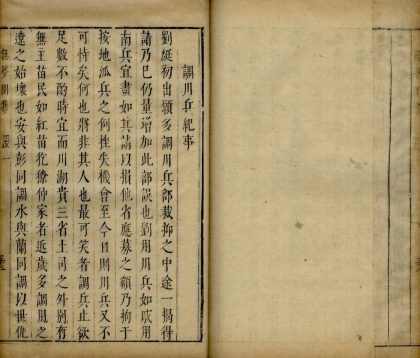 調川兵紀事
劉綎初出領多調川兵部裁抑之中途一揭得
請乃已仍量增加此部誤也劉用川兵如戚用
南兵宜盡如其請以損他省應募之額乃拘于
按地派兵之例挫失機會至今日則川兵又不
可恃矣何也將非其人也最可笑者調兵止飲
足數不酌時宜而川湖貴三省土司之外別有
無主苗民如紅苗犵獠仲家者近歲多調用之
遼之始壞也安與彭同調水與藺同調以世仇
無夢園集